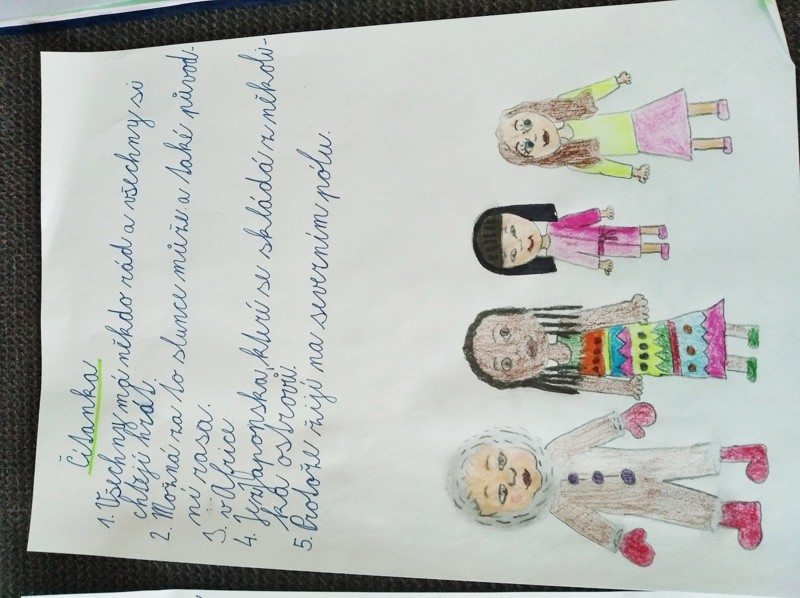 Čítanka
1. Všechny má někdo rád a všechny si
chtějí hrát.
2. Možná za to slunce může a také původ-
ní rasa.
3. v Africe
4. Je z Japonska, které se skládá z několi-
ka ostrovů.
5. Protože žijí na severním pólu.